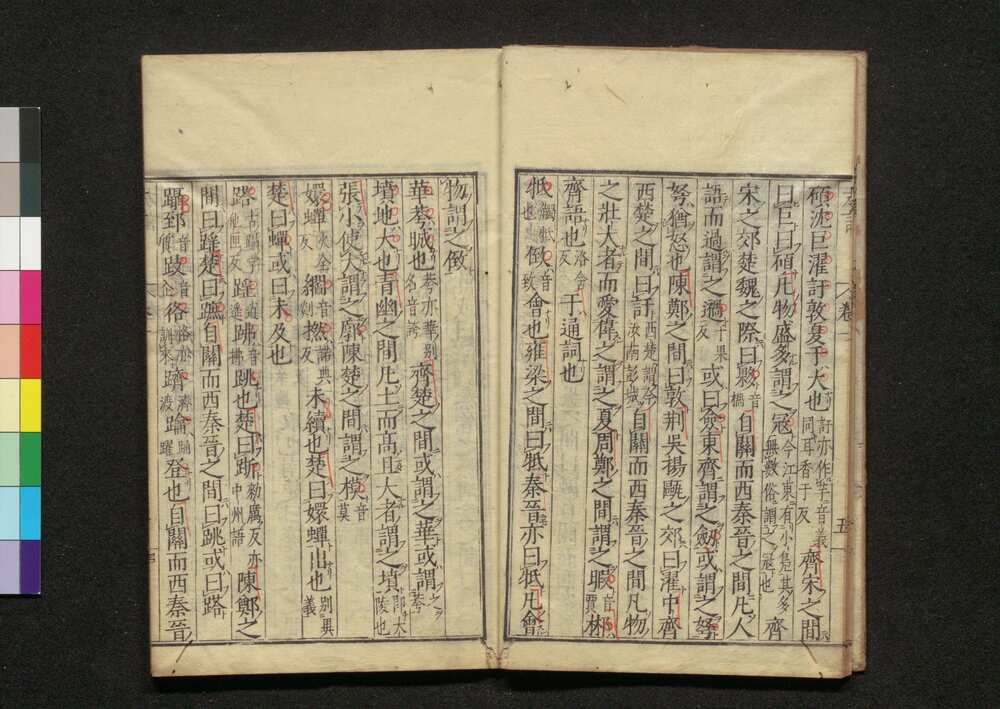 碩沈巨濯訏敦夏于大也 訏亦作芋音義同耳香于反 齊宋之間
曰巨曰碩凡物盛多謂之寇 今江東有小鳧其多無數俗謂之寇也 齊
宋之郊楚魏之際曰夥 音禍 自關而西秦晉之間凡人
語而過謂之𨓈 于果反 或曰僉東齊謂之劒或謂之弩
弩猶怒也陳鄭之間曰敦荆吳揚甌之郊曰濯中齊
西楚之間曰訏 西楚謂今汝南彭城 自關而西秦晉之間凡物
之壯大者而愛偉之謂之夏周鄭之間謂之暇 音賈 郴
齊語也 洛含反 于通詞也
抵 觸抵也 㣄 音致 會也雍梁之間曰抵秦晉亦曰抵凡會
物謂之㣄
華荂晠也 荂亦華別名音誇 齊楚之間或謂之華或謂之荂
墳地大也青幽之間凡土而高且大者謂之墳 即大陵也
張小使大謂之廓陳楚之間謂之摸 音莫
嬛蟬 火全反 繝 音剡 撚 諾典反 未續也楚曰嬛蟬出也 別異義
楚曰蟬或曰未及也
路 古蹋字他匣反 𨇨 逍遙 跳 音拂 跳也楚曰䟐 勑厲反亦中州語 陳鄭之
間曰䠛楚曰蹠自關而西秦晉之間曰跳或曰路
躡郅 音質 跂 音企 𢓜 洛亦訓來 躋 濟渡 踚 踊躍 登也自關而西秦晉